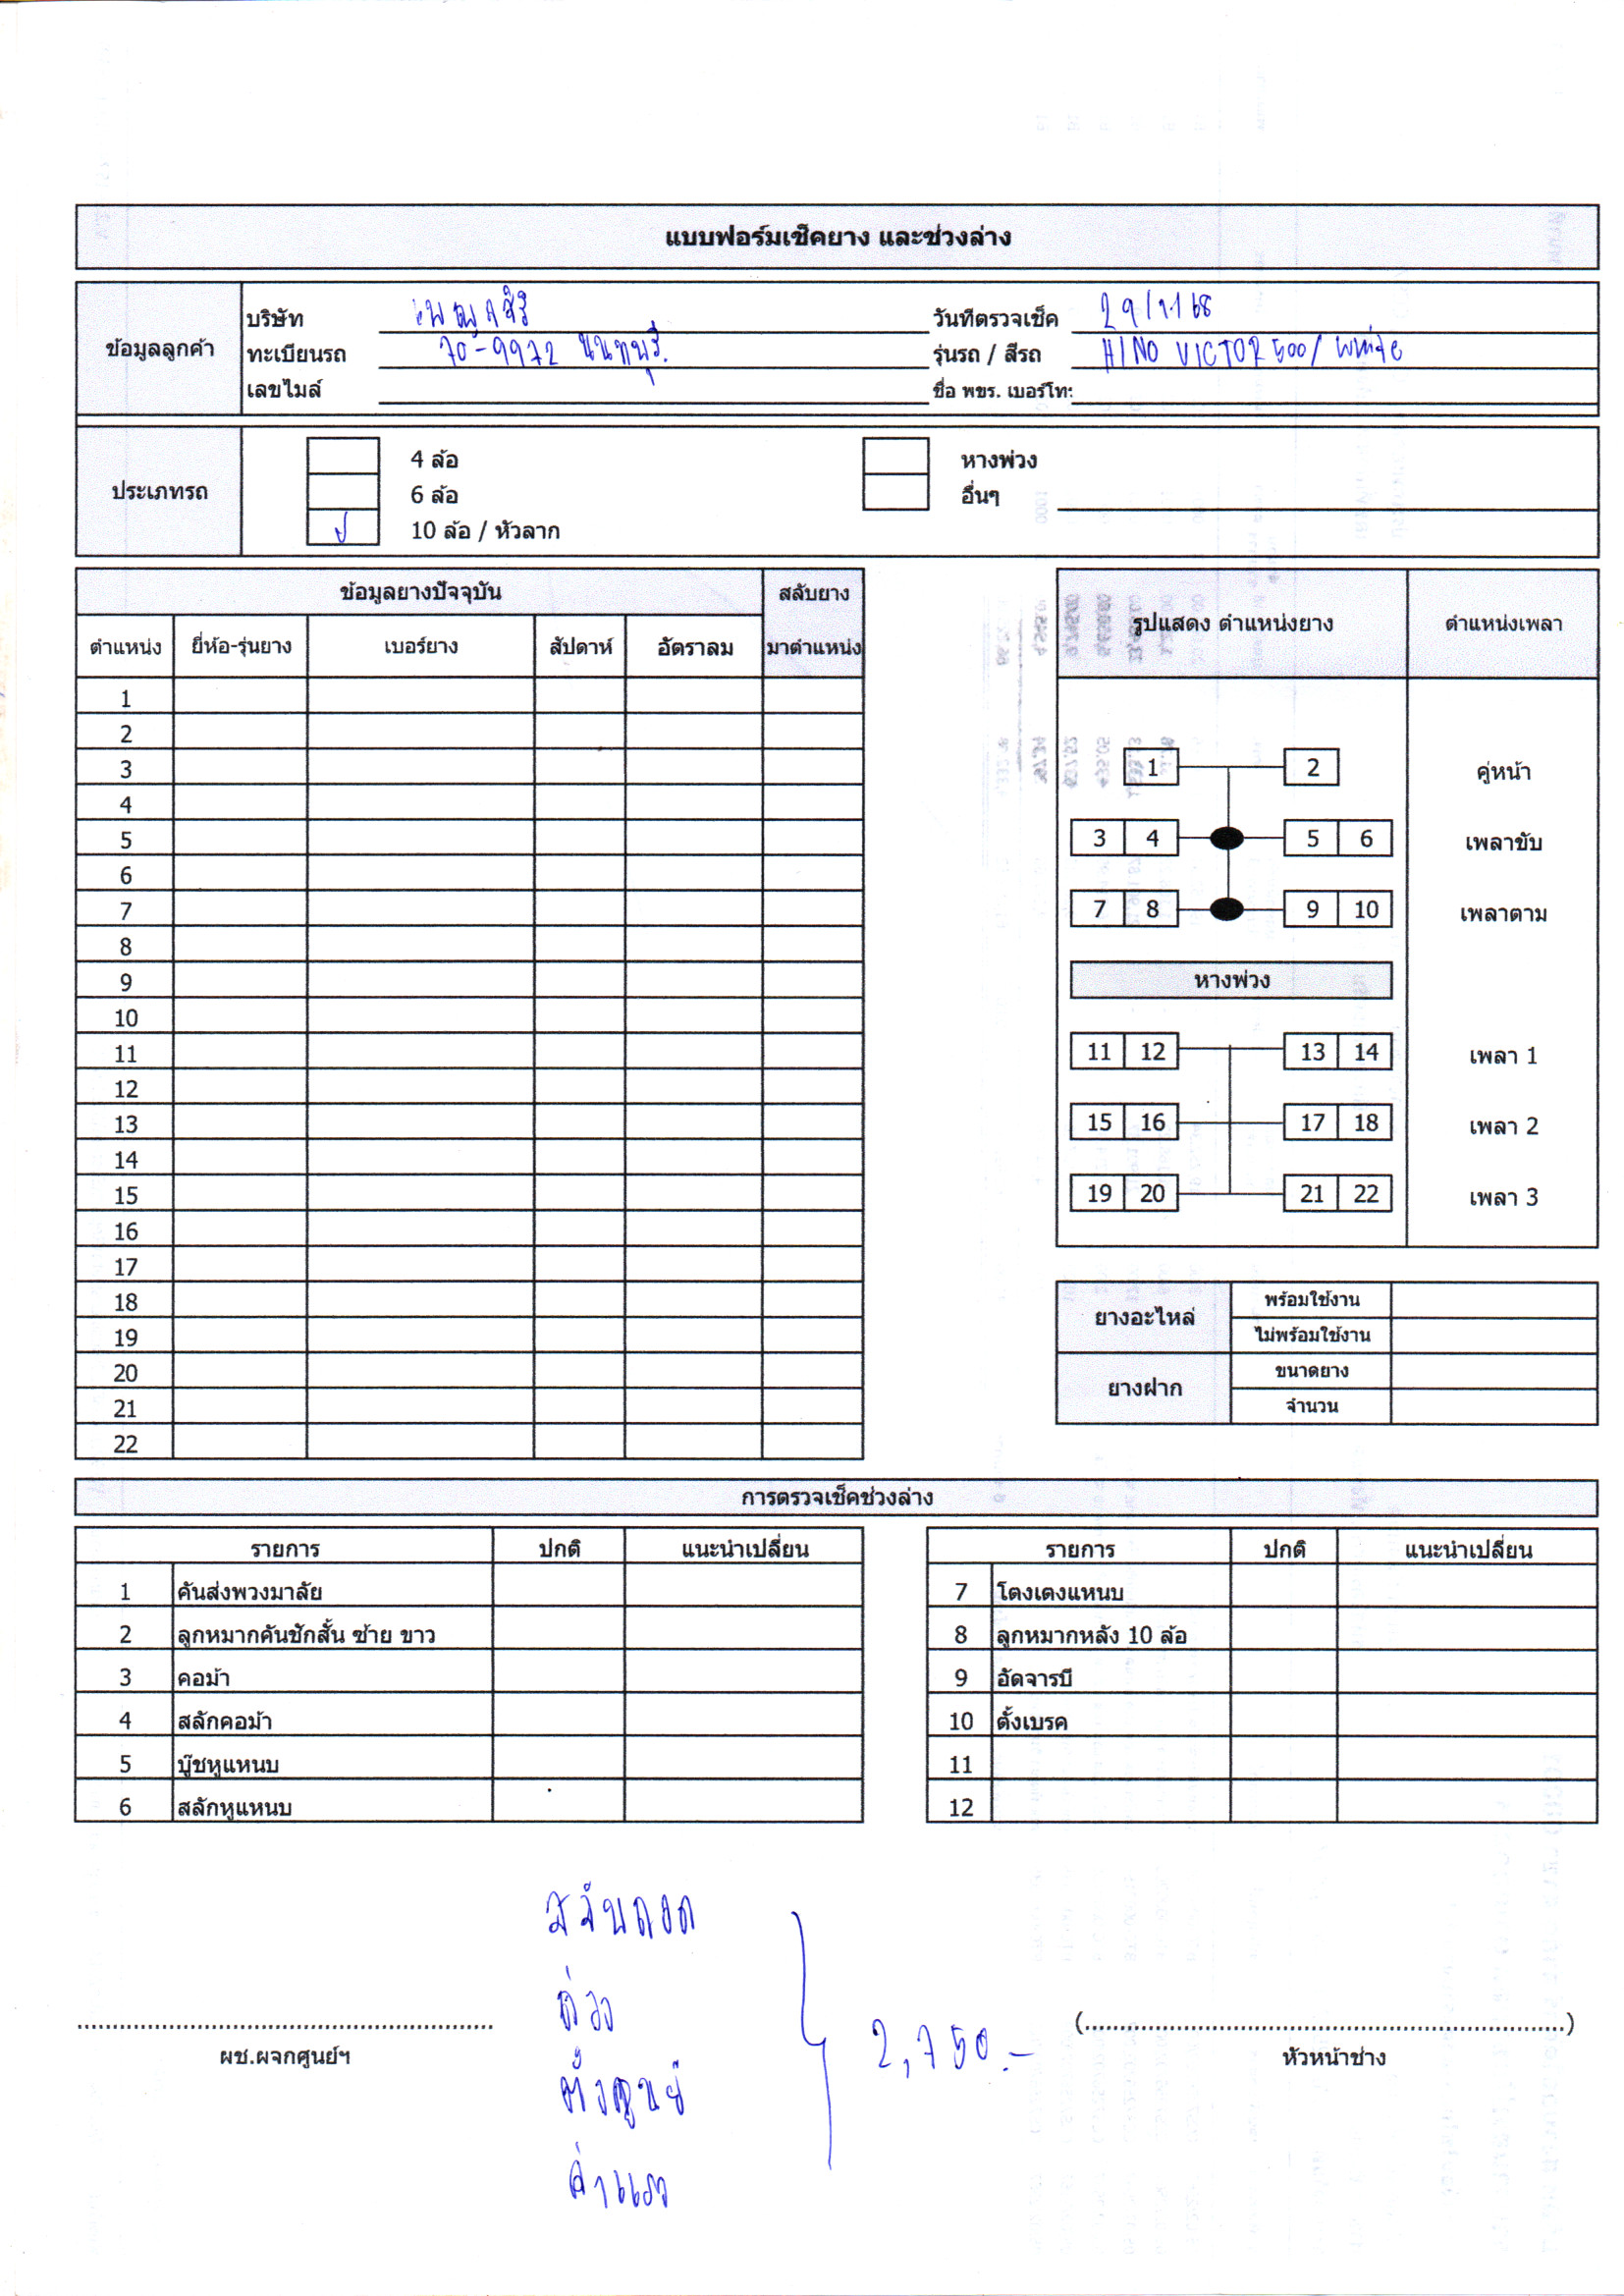 แบบฟอร์มเช็คยาง และช่วงล่าง
ข้อมูลลูกค้า
บริษัท
วันที่ตรวจเช็ค 29/11/68
ทะเบียนรถ 70-9972 นนทบุรี
รุ่นรถ / สีรถ HINO VICTOR 500/ White
เลขไมล์
ชื่อ พขร. เบอร์โทร
ประเภทรถ
4 ล้อ
หางพ่วง
6 ล้อ
อื่นๆ
10 ล้อ / หัวลาก
ข้อมูลยางปัจจุบัน สลับยาง
ตำแหน่ง ยี่ห้อ-รุ่นยาง เบอร์ยาง สัปดาห์ อัตราลม มาตำแหน่ง
1
2
3
4
5
6
7
8
9
10
11
12
13
14
15
16
17
18
19
20
21
22
รูปแสดง ตำแหน่งยาง ตำแหน่งเพลา
1 2 คู่หน้า
3 4 5 6 เพลาขับ
7 8 9 10 เพลาตาม
หางพ่วง
11 12 13 14 เพลา 1
15 16 17 18 เพลา 2
19 20 21 22 เพลา 3
ยางอะไหล่
พร้อมใช้งาน
ไม่พร้อมใช้งาน
ยางฝาก
ขนาดยาง
จำนวน
การตรวจเช็คช่วงล่าง
รายการ ปกติ แนะนำเปลี่ยน
1 คันส่งพวงมาลัย
2 ลูกหมากคันชักสั้น ซ้าย ขาว
3 คอม้า
4 สลักคอม้า
5 บู๊ชหูแหนบ
6 สลักหูแหนบ
รายการ ปกติ แนะนำเปลี่ยน
7 โตงเตงแหนบ
8 ลูกหมากหลัง 10 ล้อ
9 อัดจารบี
10 ตั้งเบรค
11
12
ถ่วง
ตั้งศูนย์
ค่าแรง
2,750.-
ผช.ผจกศูนย์ฯ
(      )
หัวหน้าช่าง